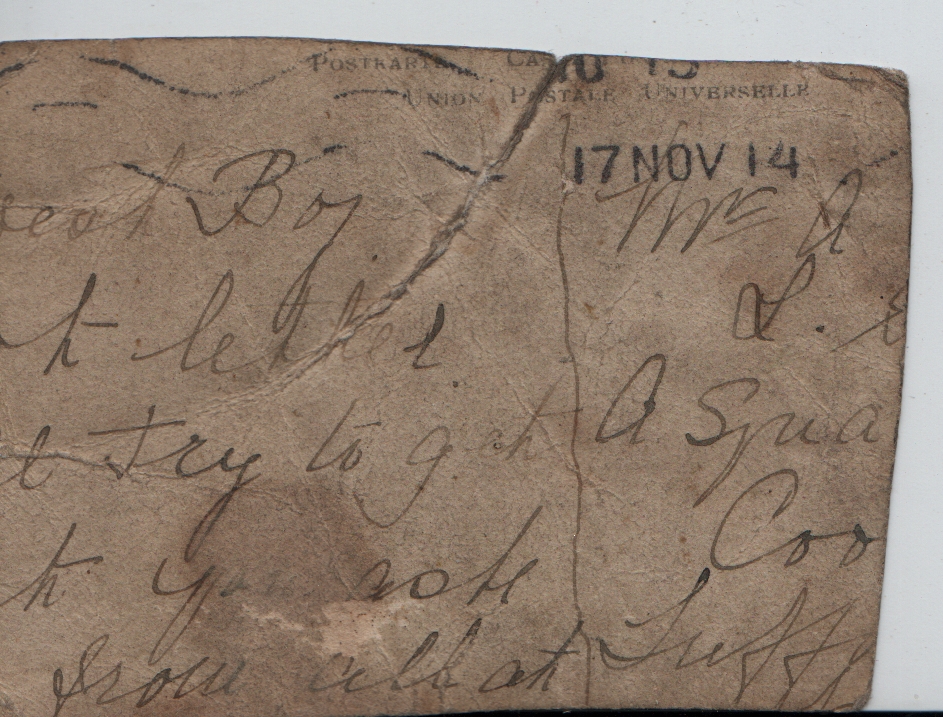 POSTKARTE CA
UNION POSTALE UNIVERSELLE
17 NOV 14
Boy
letter
try to get
you ask
from all at
Mr A
L.
A Squa
Coo
Suff